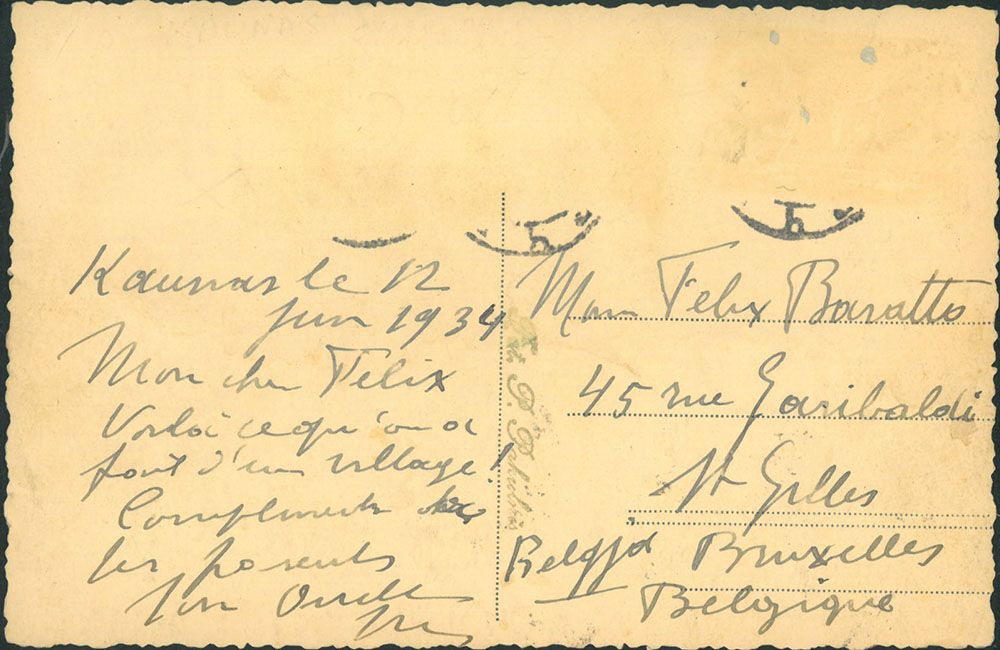 Kaunas le 12
juin 1934
Mon cher Félix
Voilà ce qu'on a
fait d'un village!
Compliments
les parents
Ton Oncle
Félix Baratto
45 rue Garibaldi
St Gilles
Bruxelles
Belgique